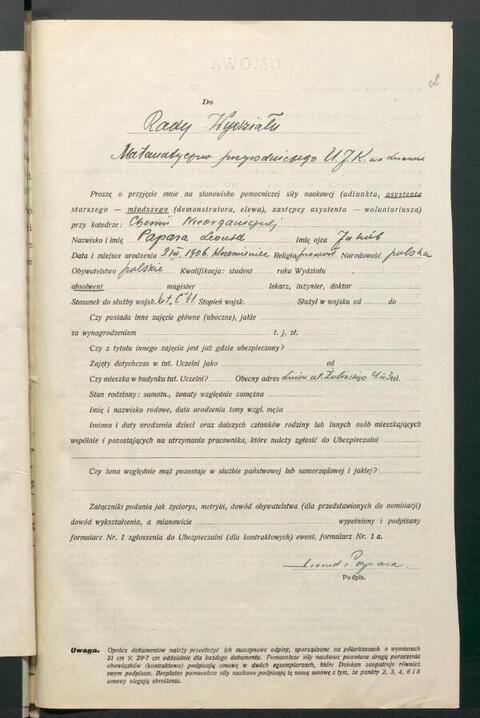 UMOWA
2
Do
Rady Wydziału
Matematyczno przyrodniczego U.J.K. we Lwowie
Proszę o przyjęcie mnie na stanowisko pomocniczej siły naukowej (adiunkta, asystenta
starszego — młodszego (demonstratora, elewa), zastępcy asystenta — woluntariusza)
przy katedrze: Chemii Nieorganicznej
Nazwisko i imię Papara Leonid Imię ojca Jakób
Data i miejsce urodzenia 9 III. 1906. Krzemieniec Religia prawosł. Narodowość polska
Obywatelstwo polskie Kwalifikacja: student roku Wydziału
absolwent magister lekarz, inżynier, doktor
Stosunek do służby wojsk. kat. C Stopień wojsk. Służył w wojsku od do
Czy posiada inne zajęcie główne (uboczne), jakie
za wynagrodzeniem t. j. zł.
Czy z tytułu innego zajęcia jest już gdzie ubezpieczony?
Zajęty dotychczas w tut. Uczelni jako od
Czy mieszka w budynku tut. Uczelni? Obecny adres Lwów ul. tel.
Stan rodzinny: samotn., żonaty względnie zamężna
Imię i nazwisko rodowe, data urodzenia żony wzgl. męża
Imiona i daty urodzenia dzieci oraz dalszych członków rodziny lub innych osób mieszkających
wspólnie i pozostających na utrzymaniu pracownika, które należy zgłosić do Ubezpieczalni
Czy żona względnie mąż pozostaje w służbie państwowej lub samorządowej i jakiej?
Załączniki podania jak życiorys, metryki, dowód obywatelstwa (dla przedstawionych do nominacji)
dowód wykształcenia, a mianowicie wypełniony i podpisany
formularz Nr. 1 zgłoszenia do Ubezpieczalni (dla kontraktowych) ewent. formularz Nr. 1 a.
Leonid Papara
Podpis.
Uwaga. Oprócz dokumentów należy przedłożyć ich maszynowe odpisy, sporządzone na półarkuszach o wymiarach
21 cm × 29·7 cm oddzielnie dla każdego dokumentu. Pomocnicze siły naukowe powołane drogą poruczenia
obowiązków (kontraktowo) podpisują umowę w dwóch egzemplarzach, które Dziekan zaopatruje również
swym podpisem. Bezpłatne pomocnicze siły naukowe podpisują tę samą umowę z tem, że punkty 2, 3, 4, 6 i 8
umowy ulegają skreśleniu.